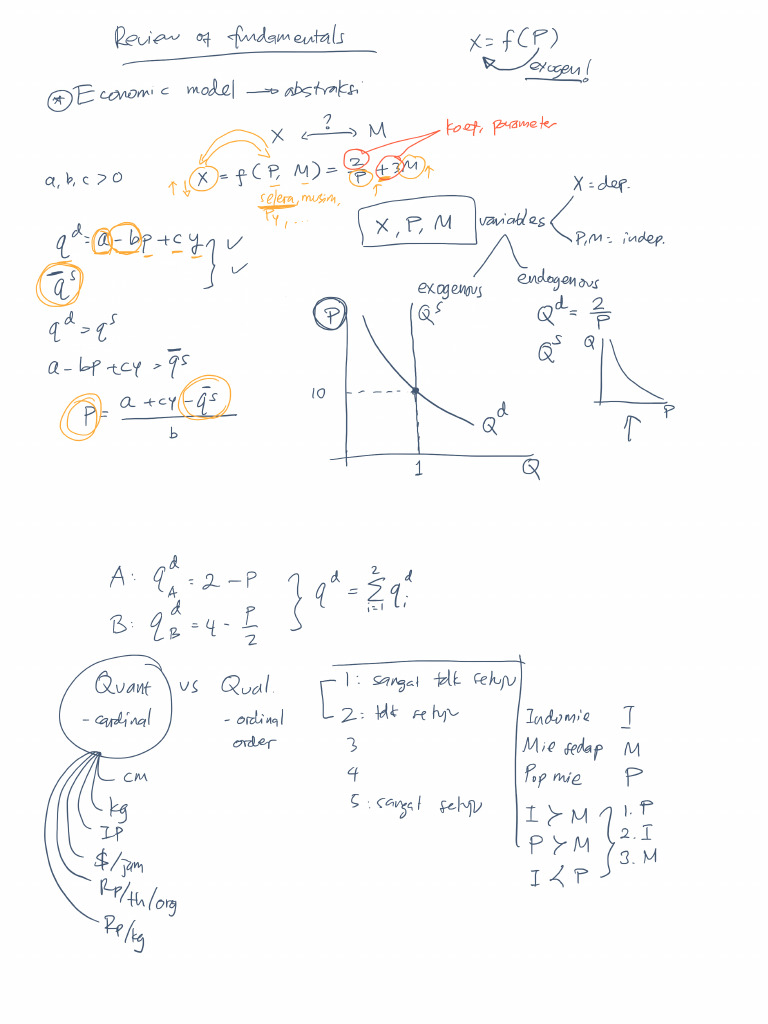 Review of fundamentals
X = f(P)
exogen!
* Economic model → abstraksi
X ←?→ M
koef, parameter
a, b, c > 0
↑↓ X = f(P, M) = 2/P + 3M ↑
selera, musim,
Py, ...
X, P, M
variables
X = dep.
P, M = indep.
exogenous
endogenous
q^d = a - bp + cy ✓
q̄^s ✓
q^d = q^s
a - bp + cy = q̄^s
P = (a + cy - q̄^s) / b
P
Q^s
10
Q^d
1
Q
Q^d = 2/P
Q^s
Q
P
↑
A: q_A^d = 2 - P
B: q_B^d = 4 - P/2
q^d = Σ_{i=1}^{2} q_i^d
Quant vs Qual.
- cardinal
- ordinal
order
cm
kg
IP
$/jam
Rp/th/org
Rp/kg
1: sangat tdk setuju
2: tdk setuju
3
4
5: sangat setuju
Indomie I
Mie sedap M
Pop mie P
I ≻ M
P ≻ M
I ≺ P
1. P
2. I
3. M